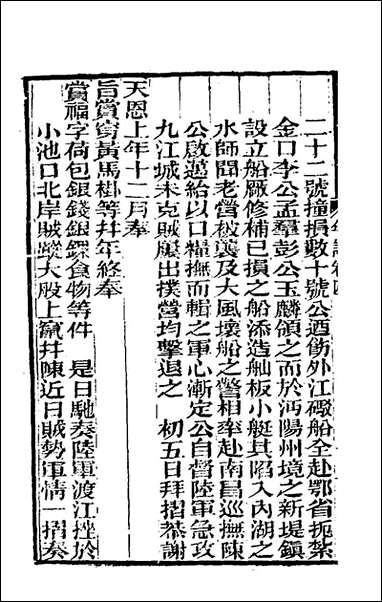 二十二號撞損數十號公迺飭外江礮船全赴鄂省扼紮
金口李公孟羣彭公玉麟領之而於沔陽州境之新堤鎮
設立船厰修補已損之船添造舢板小艇其陷入內湖之
水師聞老營被襲及大風壞船之警相率赴南昌巡撫陳
公啟邁給以口糧撫而輯之軍心漸定公自督陸軍急攻
九江城未克賊屢出撲營均擊退之　初五日拜摺恭謝
天恩上年十二月奉
旨賞穿黃馬褂等件年終奉
賞福字荷包銀錢銀錁食物等件　是日馳奏陸軍渡江挫於
小池口北岸賊蹤大股上竄幷陳近日賊勢軍情一摺奏